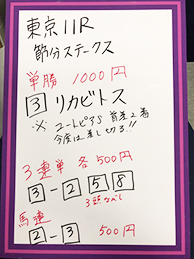 東京11R
節分ステークス
単勝 1000円
3 リカビトス
※ ユートピアS 首差2着
今度は差し切る!!
3連単 各500円
3-2 5 8
3頭ながし
馬連
2-3 500円